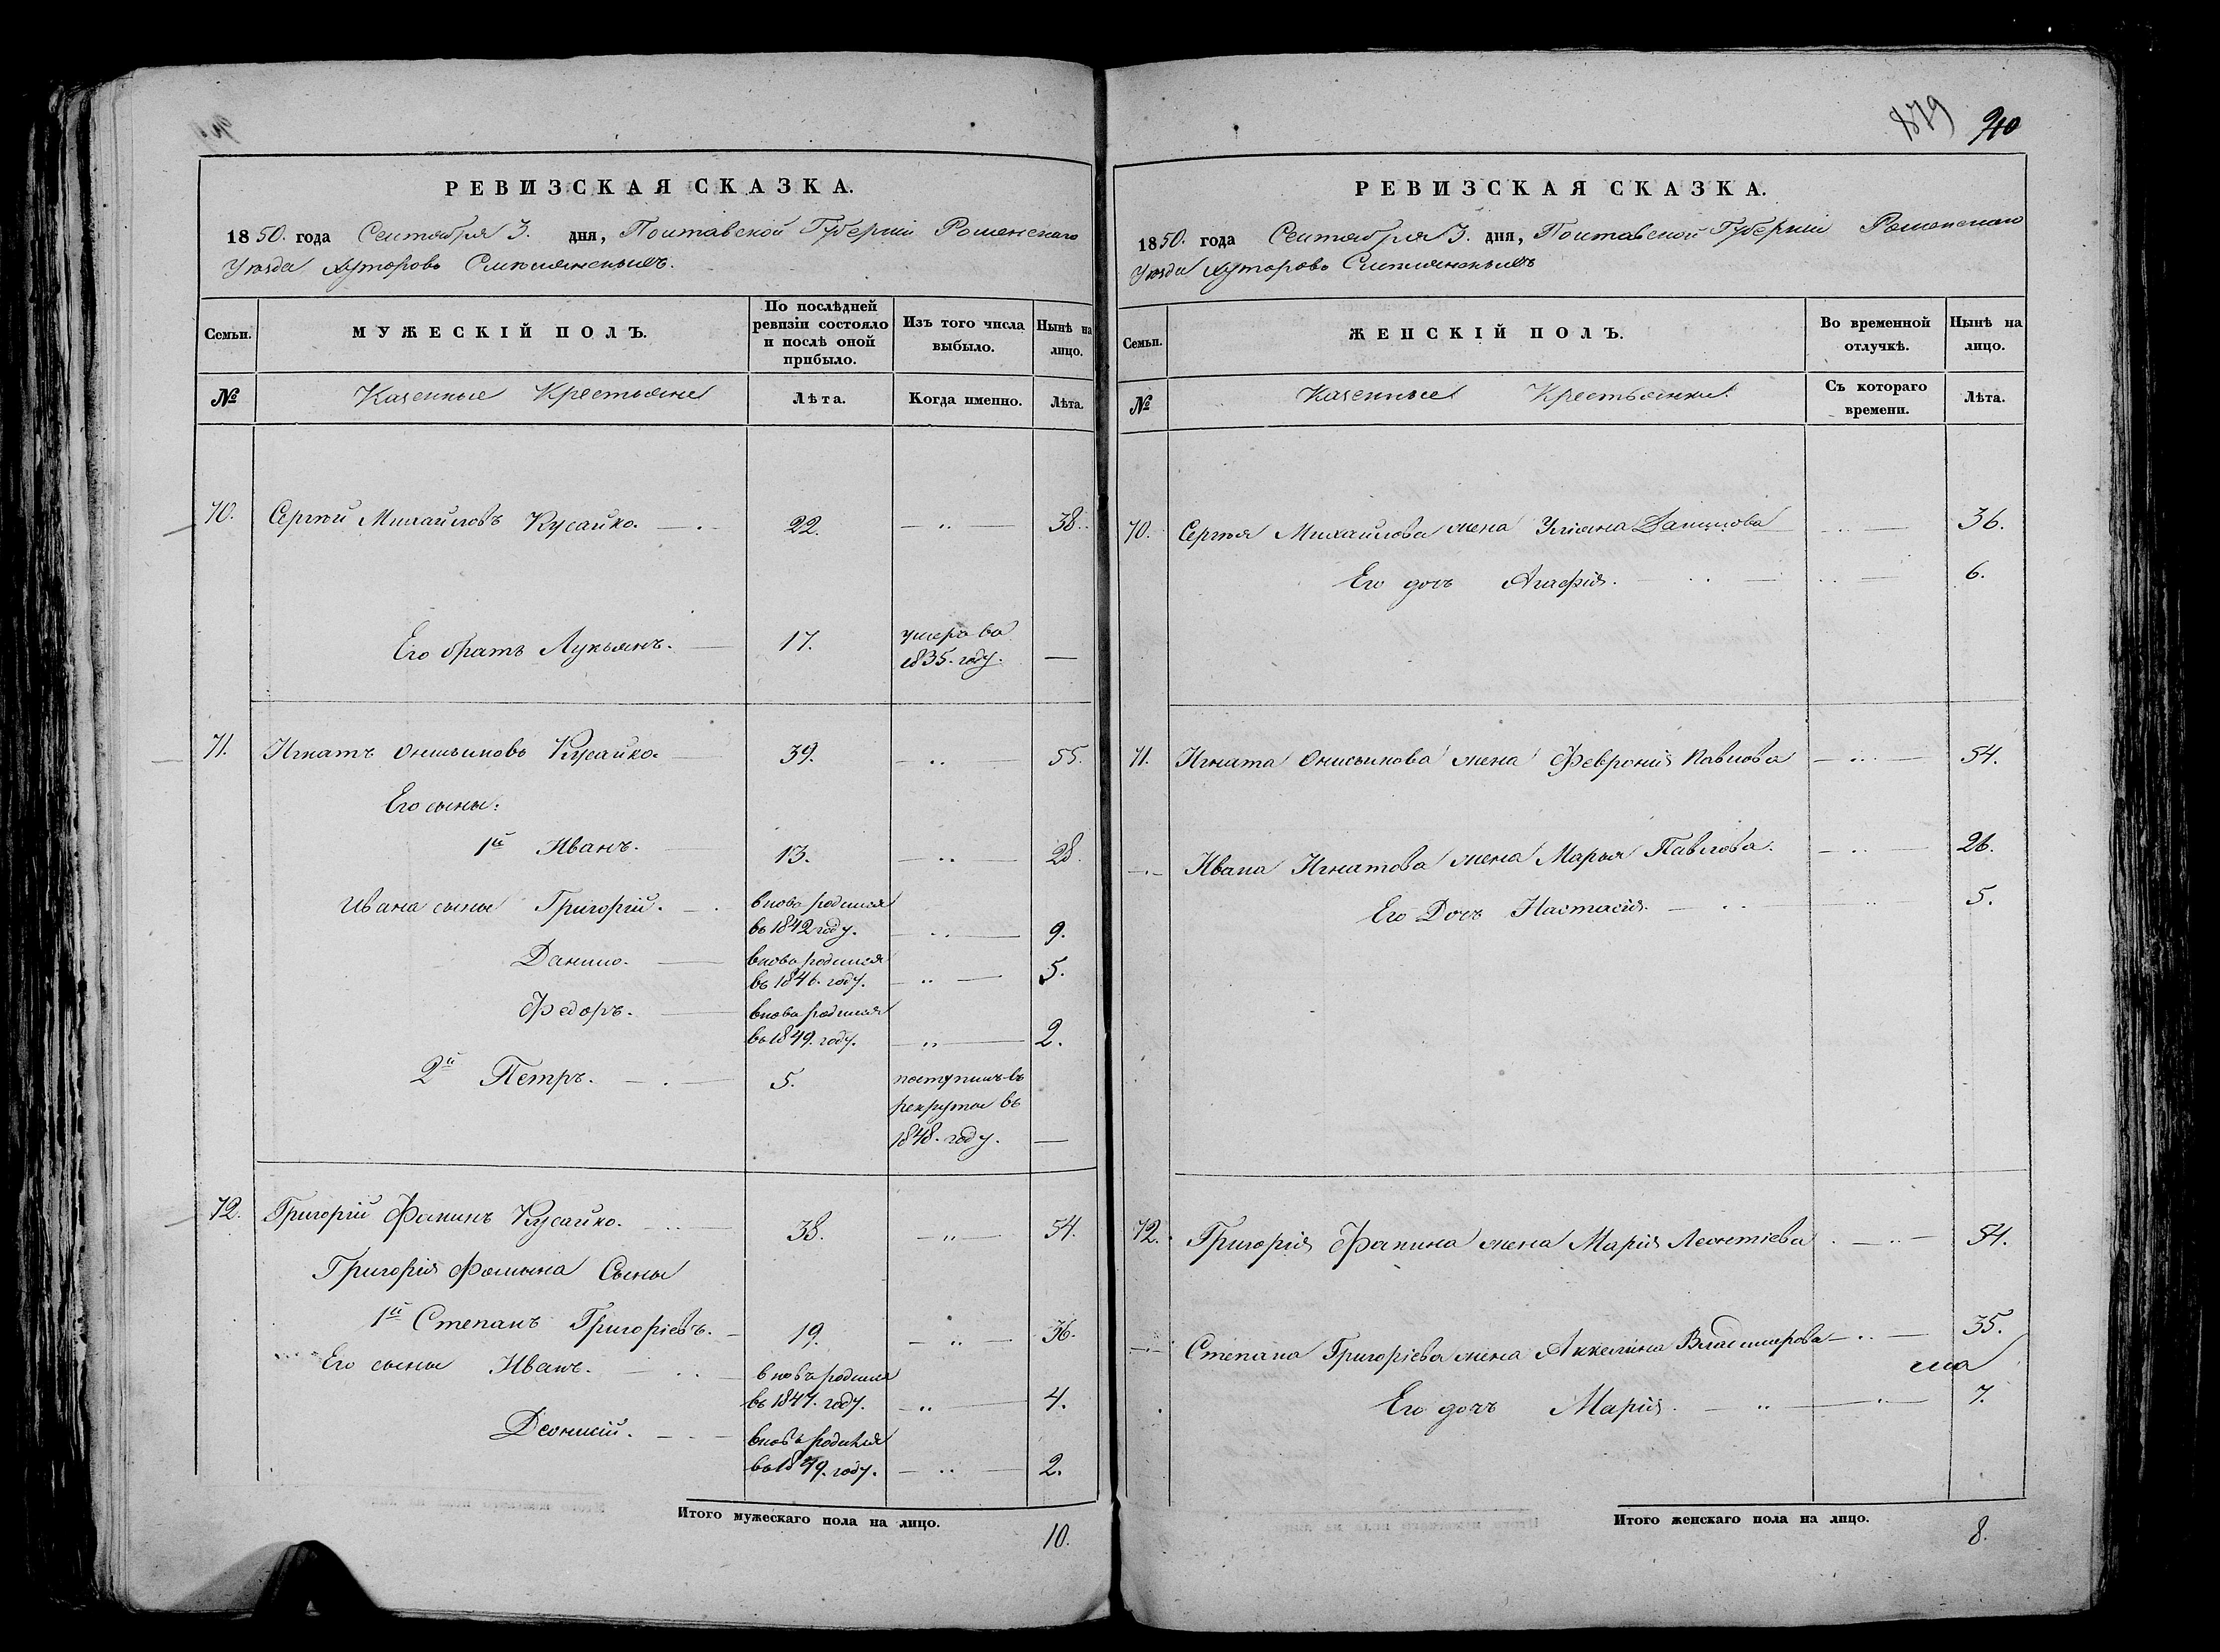 РЕВИЗСКАЯ СКАЗКА.
1850. года Сентября 3. дня, Полтавской Губерніи Роменскаго
Уѣзда Хуторовъ
Семьи.
МУЖЕСКІЙ ПОЛЪ.
По послѣдней ревизіи состояло и послѣ оной прибыло.
Изъ того числа выбыло.
Нынѣ на лицо.
№
Казенные Крестьяне
Лѣта.
Когда именно.
Лѣта.
70. Сергѣй Михайловъ Кусайко. 22. 38.
Его братъ Лукьянъ. 17. умеръ въ
1835. году.
71. Игнатъ Онисимовъ Кусайко. 39. 55.
Его сыны:
1й Иванъ. 13. 28.
Ивана сыны Григорій. вновь родился
въ 1842 году. 9.
Данило. вновь родился
въ 1846. году. 5.
Федоръ. вновь родился
въ 1849. году. 2.
2й Петръ. 5. поступилъ въ
рекруты въ
1848. году.
72. Григорій Фоминъ Кусайко. 38. 54.
Григорія Фомина Сыны
1й Степанъ Григоріевъ. 19. 36.
Его сыны Иванъ. вновь родился
въ 1847. году. 4.
Деонисій. вновь родился
въ 1849. году. 2.
Итого мужескаго пола на лицо.
10.
879 910
РЕВИЗСКАЯ СКАЗКА.
1850. года Сентября 3. дня, Полтавской Губерніи Роменскаго
Уѣзда Хуторовъ
Семьи.
ЖЕНСКІЙ ПОЛЪ.
Во временной отлучкѣ.
Нынѣ на лицо.
№
Казенные Крестьянки.
Съ котораго времени.
Лѣта.
70. Сергѣя Михайлова жена Уліяна Данилова 36.
Его дочь Агафія. 6.
71. Игната Онисимова жена Февронія Павлова 54.
Ивана Игнатова жена Марья Павлова. 26.
Его Дочь Настасія. 5.
72. Григорія Фомина жена Марія Леонтіева 54.
Степана Григоріева жена Акилина Владимерова 35.
Его дочь Марія. 7.
Итого женскаго пола на лицо.
8.